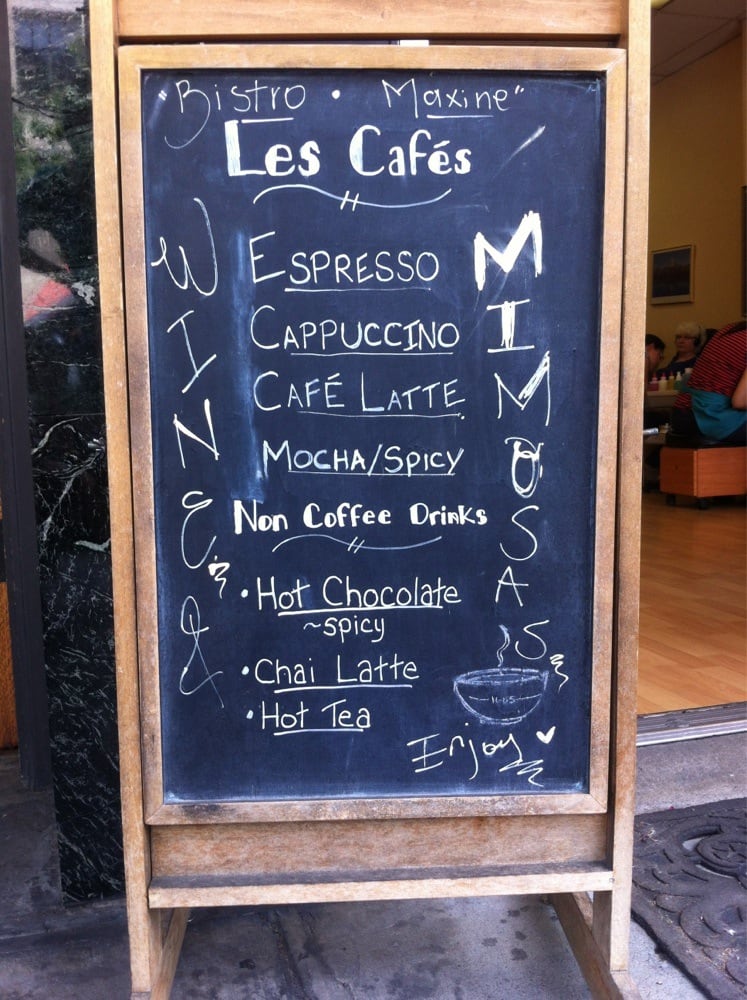 "Bistro • Maxine"
Les Cafés
WINE &
Espresso
Cappuccino
Café Latte
Mocha/Spicy
Non Coffee Drinks
• Hot Chocolate
~spicy
• Chai Latte
• Hot Tea
MIMOSAS
Enjoy